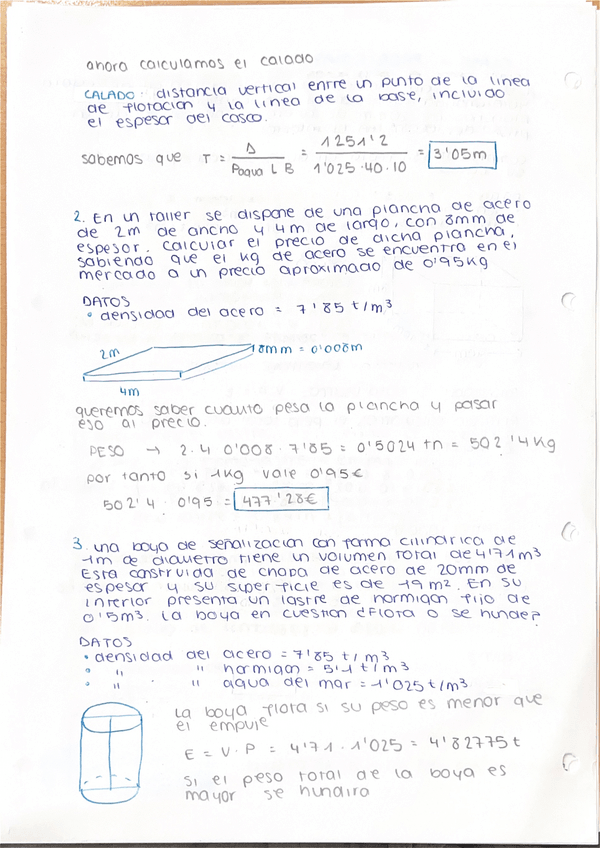 ahora calculamos el calado
CALADO: distancia vertical entre un punto de la linea
de flotacion y la linea de la base, incluido
el espesor del casco.
sabemos que T = Δ / Pagua L B = 1251'2 / 1'025·40·10 = 3'05m
2. En un taller se dispone de una plancha de acero
de 2m de ancho y 4m de largo, con 8mm de
espesor. Calcular el precio de dicha plancha,
sabiendo que el kg de acero se encuentra en el
mercado a un precio aproximado de 0'95kg
DATOS
• densidad del acero = 7'85 t/m³
2m
8mm = 0'008m
4m
queremos saber cuanto pesa la plancha y pasar
eso al precio.
PESO → 2·4 0'008·7'85 = 0'5024 tn = 502'4Kg
por tanto si 1kg vale 0'95€
502'4 · 0'95 = 477'28€
3. una boya de señalizacion con forma cilindrica de
1m de diametro tiene un volumen total de 4'71m³
Esta construida de chapa de acero de 20mm de
espesor y su superficie es de 19m2. En su
interior presenta un lastre de hormigon fijo de
0'5m³. La boya en cuestion ¿flota o se hunde?
DATOS
• densidad del acero = 7'85 t/m³
• " " hormigon = 5'1 t/m³
• " " agua del mar = 1'025 t/m³
La boya flota si su peso es menor que
el empuje
E = V·P = 4'71·1'025 = 4'82775t
si el peso total de la boya es
mayor se hundira